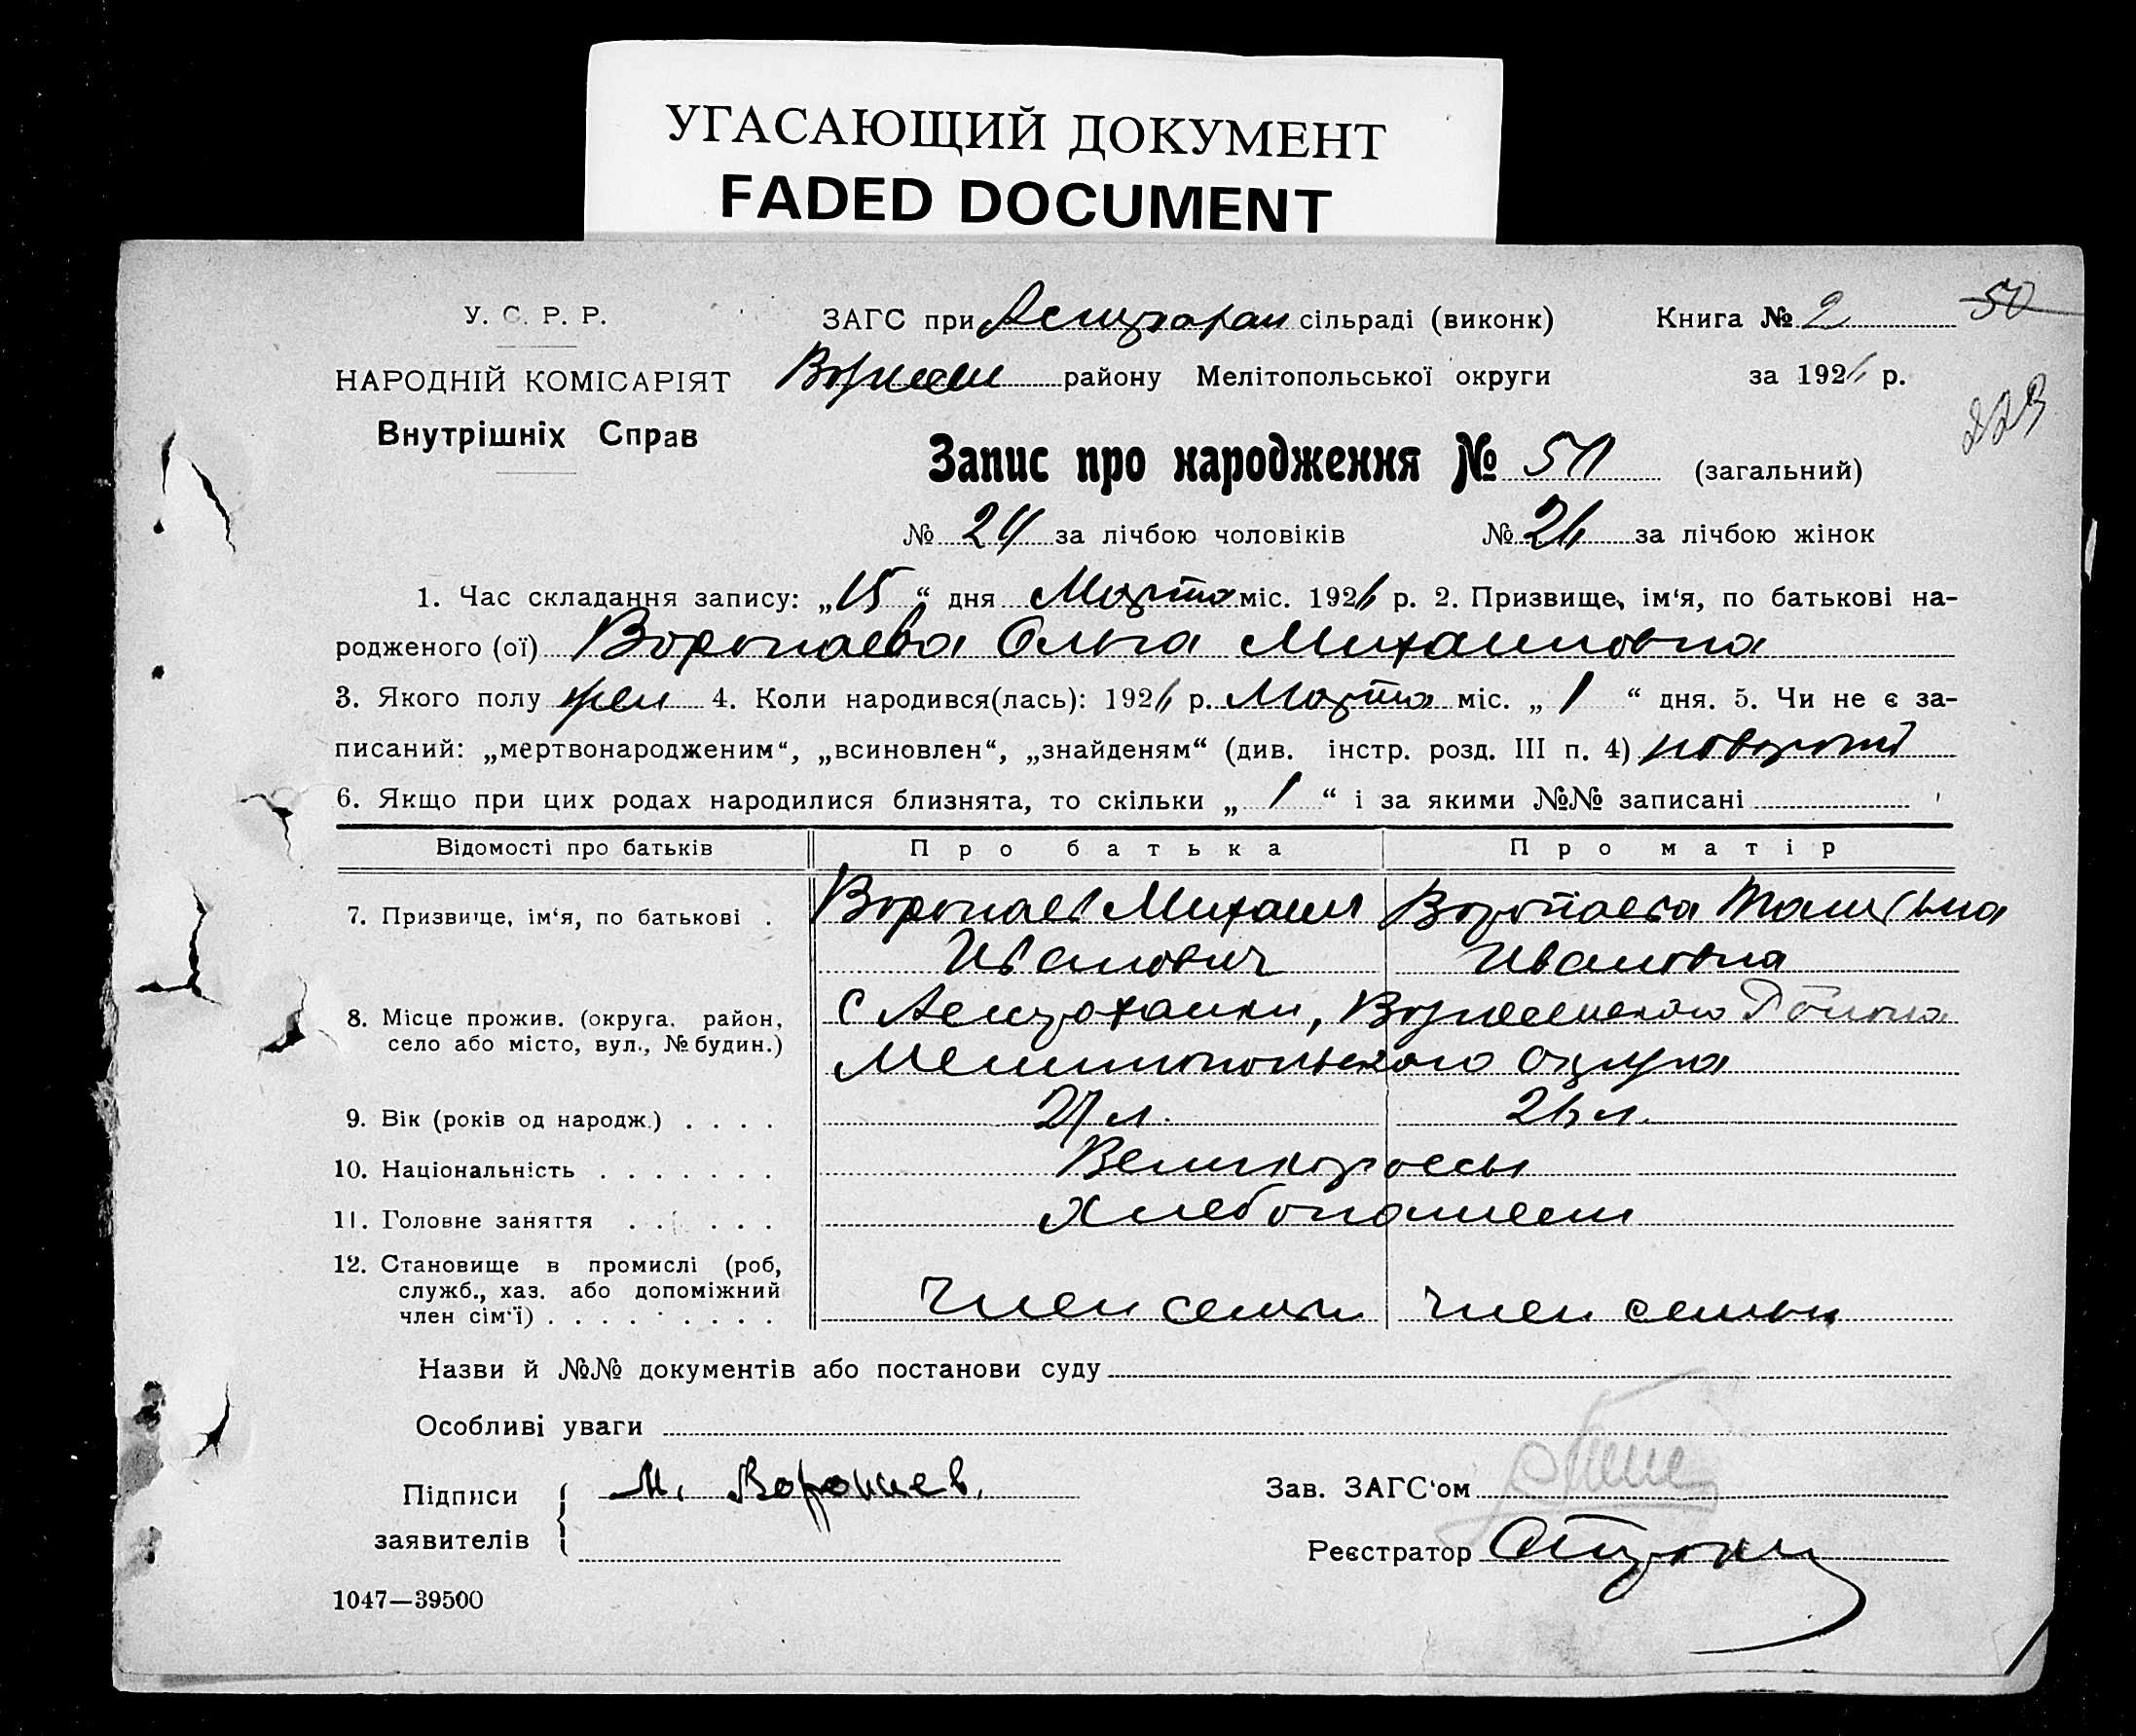 УГАСАЮЩИЙ ДОКУМЕНТ
FADED DOCUMENT
У. С. Р. Р.
НАРОДНІЙ КОМІСАРІЯТ
Внутрішніх Справ
ЗАГС при Астрахан сільраді (виконк)
Книга № 2
50
Вознесен району Мелітопольської округи
за 1926 р.
223
Запис про народження № 50 (загальний)
№ 24 за лічбою чоловіків № 26 за лічбою жінок
1. Час складання запису: „15“ дня Марта міс. 1926 р. 2. Призвище, ім‘я, по батькові на-
родженого (ої) Воропаева Ольга Михаиловна
3. Якого полу жен 4. Коли народився(лась): 1926 р. Марта міс. „ 1 “ дня. 5. Чи не є за-
писаний: „мертвонародженим“, „всиновлен“, „знайденям“ (див. інстр. розд. III п. 4)
6. Якщо при цих родах народилися близнята, то скільки „ 1 “ і за якими №№ записані
Відомості про батьків Про батька Про матір
7. Призвище, ім‘я, по батькові . Воропаев Михаил Воропаева Татьяна
Иванович Ивановна
8. Місце прожив. (округа, район,
село або місто, вул., № будин.)
с Астраханки, Вознесенского Района
Мелитопольского округа
9. Вік (років од народж.) . . . . 27 л. 26 л.
10. Національність . . . . . . . Великороссы
11. Головне заняття . . . . . . Хлебопашест
12. Становище в промислі (роб,
служб., хаз. або допоміжний
член сім‘ї) . . . . . . . . . Член семьи член семьи
Назви й №№ документів або постанови суду
Особливі уваги
Підписи
заявителів
М. Воропаев.
Зав. ЗАГС‘ом
Реєстратор
1047—39500